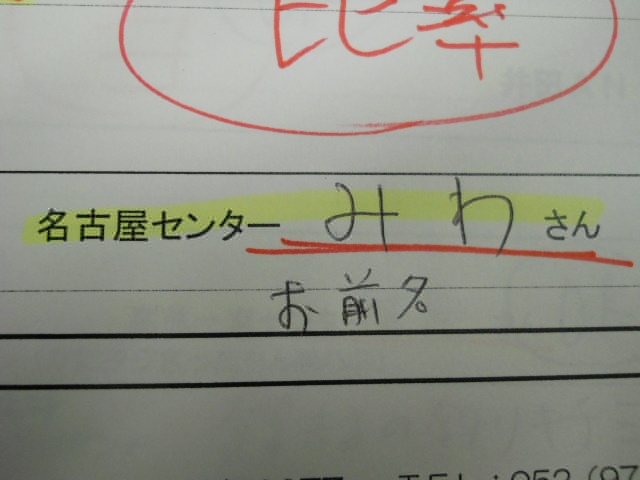 比率
名古屋センター みわ さん
お前名
TEL:052(97